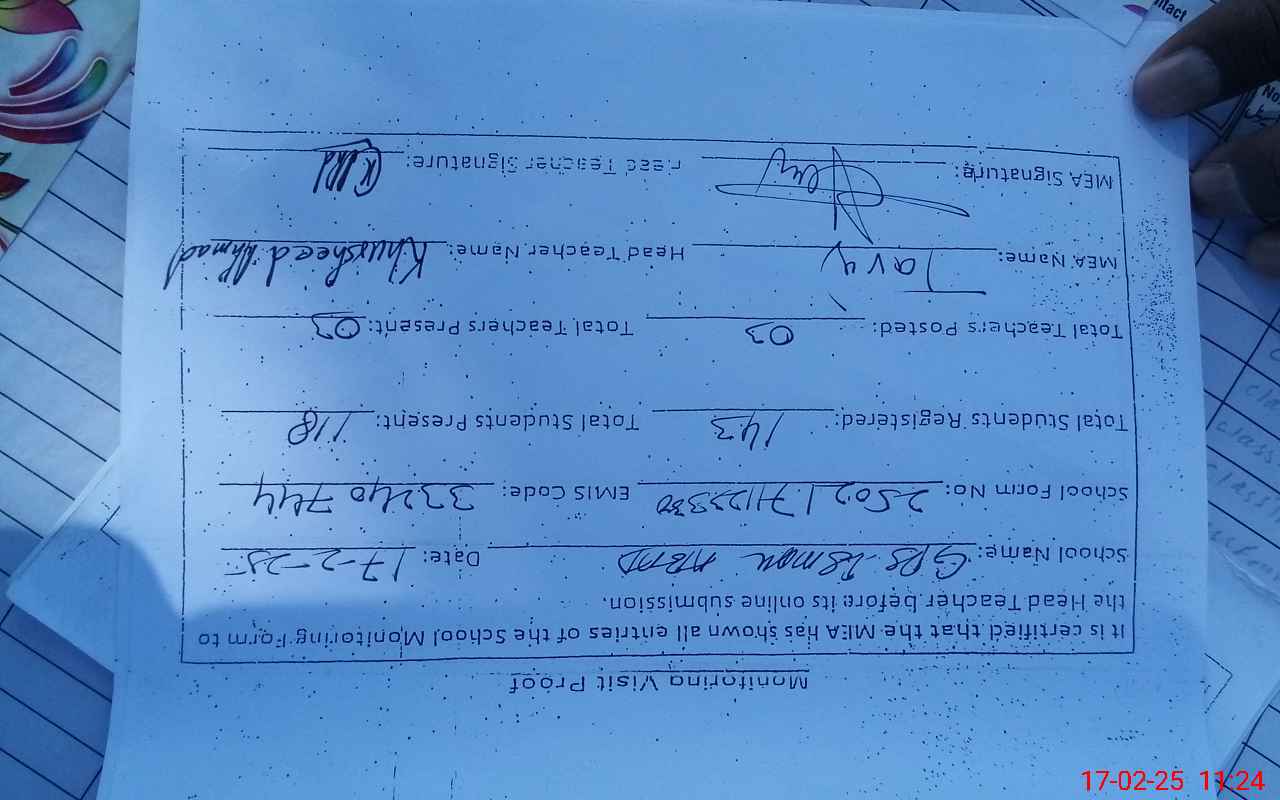 Monitoring Visit Proof
It is certified that the MEA has shown all entries of the School Monitoring Form to
the Head Teacher before its online submission.
School Name: GPS Date: 17-2-25
School Form No: EMIS Code: 33240744
Total Students Registered: 143 Total Students Present: 118
Total Teachers Posted: 03 Total Teachers Present: 03
MEA Name: Head Teacher Name: Khursheed Ahmad
MEA Signature: Head Teacher Signature:
17-02-25 11:24